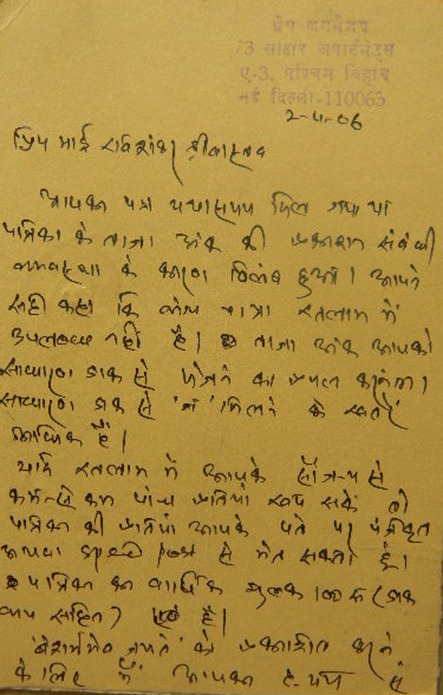 प्रेम जनमेजय
73 साक्षर अपार्टमेंट्स
ए-3, पश्चिम विहार
नई दिल्ली-110063
2-4-06
प्रिय भाई रविशंकर श्रीवास्तव
आपका पत्र यथासमय मिल गया था
पत्रिका के ताजा अंक की प्रकाशन संबंधी
व्यवस्था के कारण विलंब हुआ। आपने
सही कहा कि व्यंग्य यात्रा रतलाम में
उपलब्ध नहीं है। ताजा अंक आपको
साधारण डाक से भेजने का प्रयत्न करूंगा।
साधारण डाक से 'न' मिलने के खतरे
अधिक हैं।
यदि रतलाम में आपके सौजन्य से
कम से कम पांच प्रतियां खप सकें तो
पत्रिका की प्रतियां आपके पते पर पंजीकृत
अथवा speed post से भेज सकता हूं।
पत्रिका का वार्षिक शुल्क (डाक
व्यय सहित) है।
को प्रकाशित करने
के लिए मैं आपका हृदय से